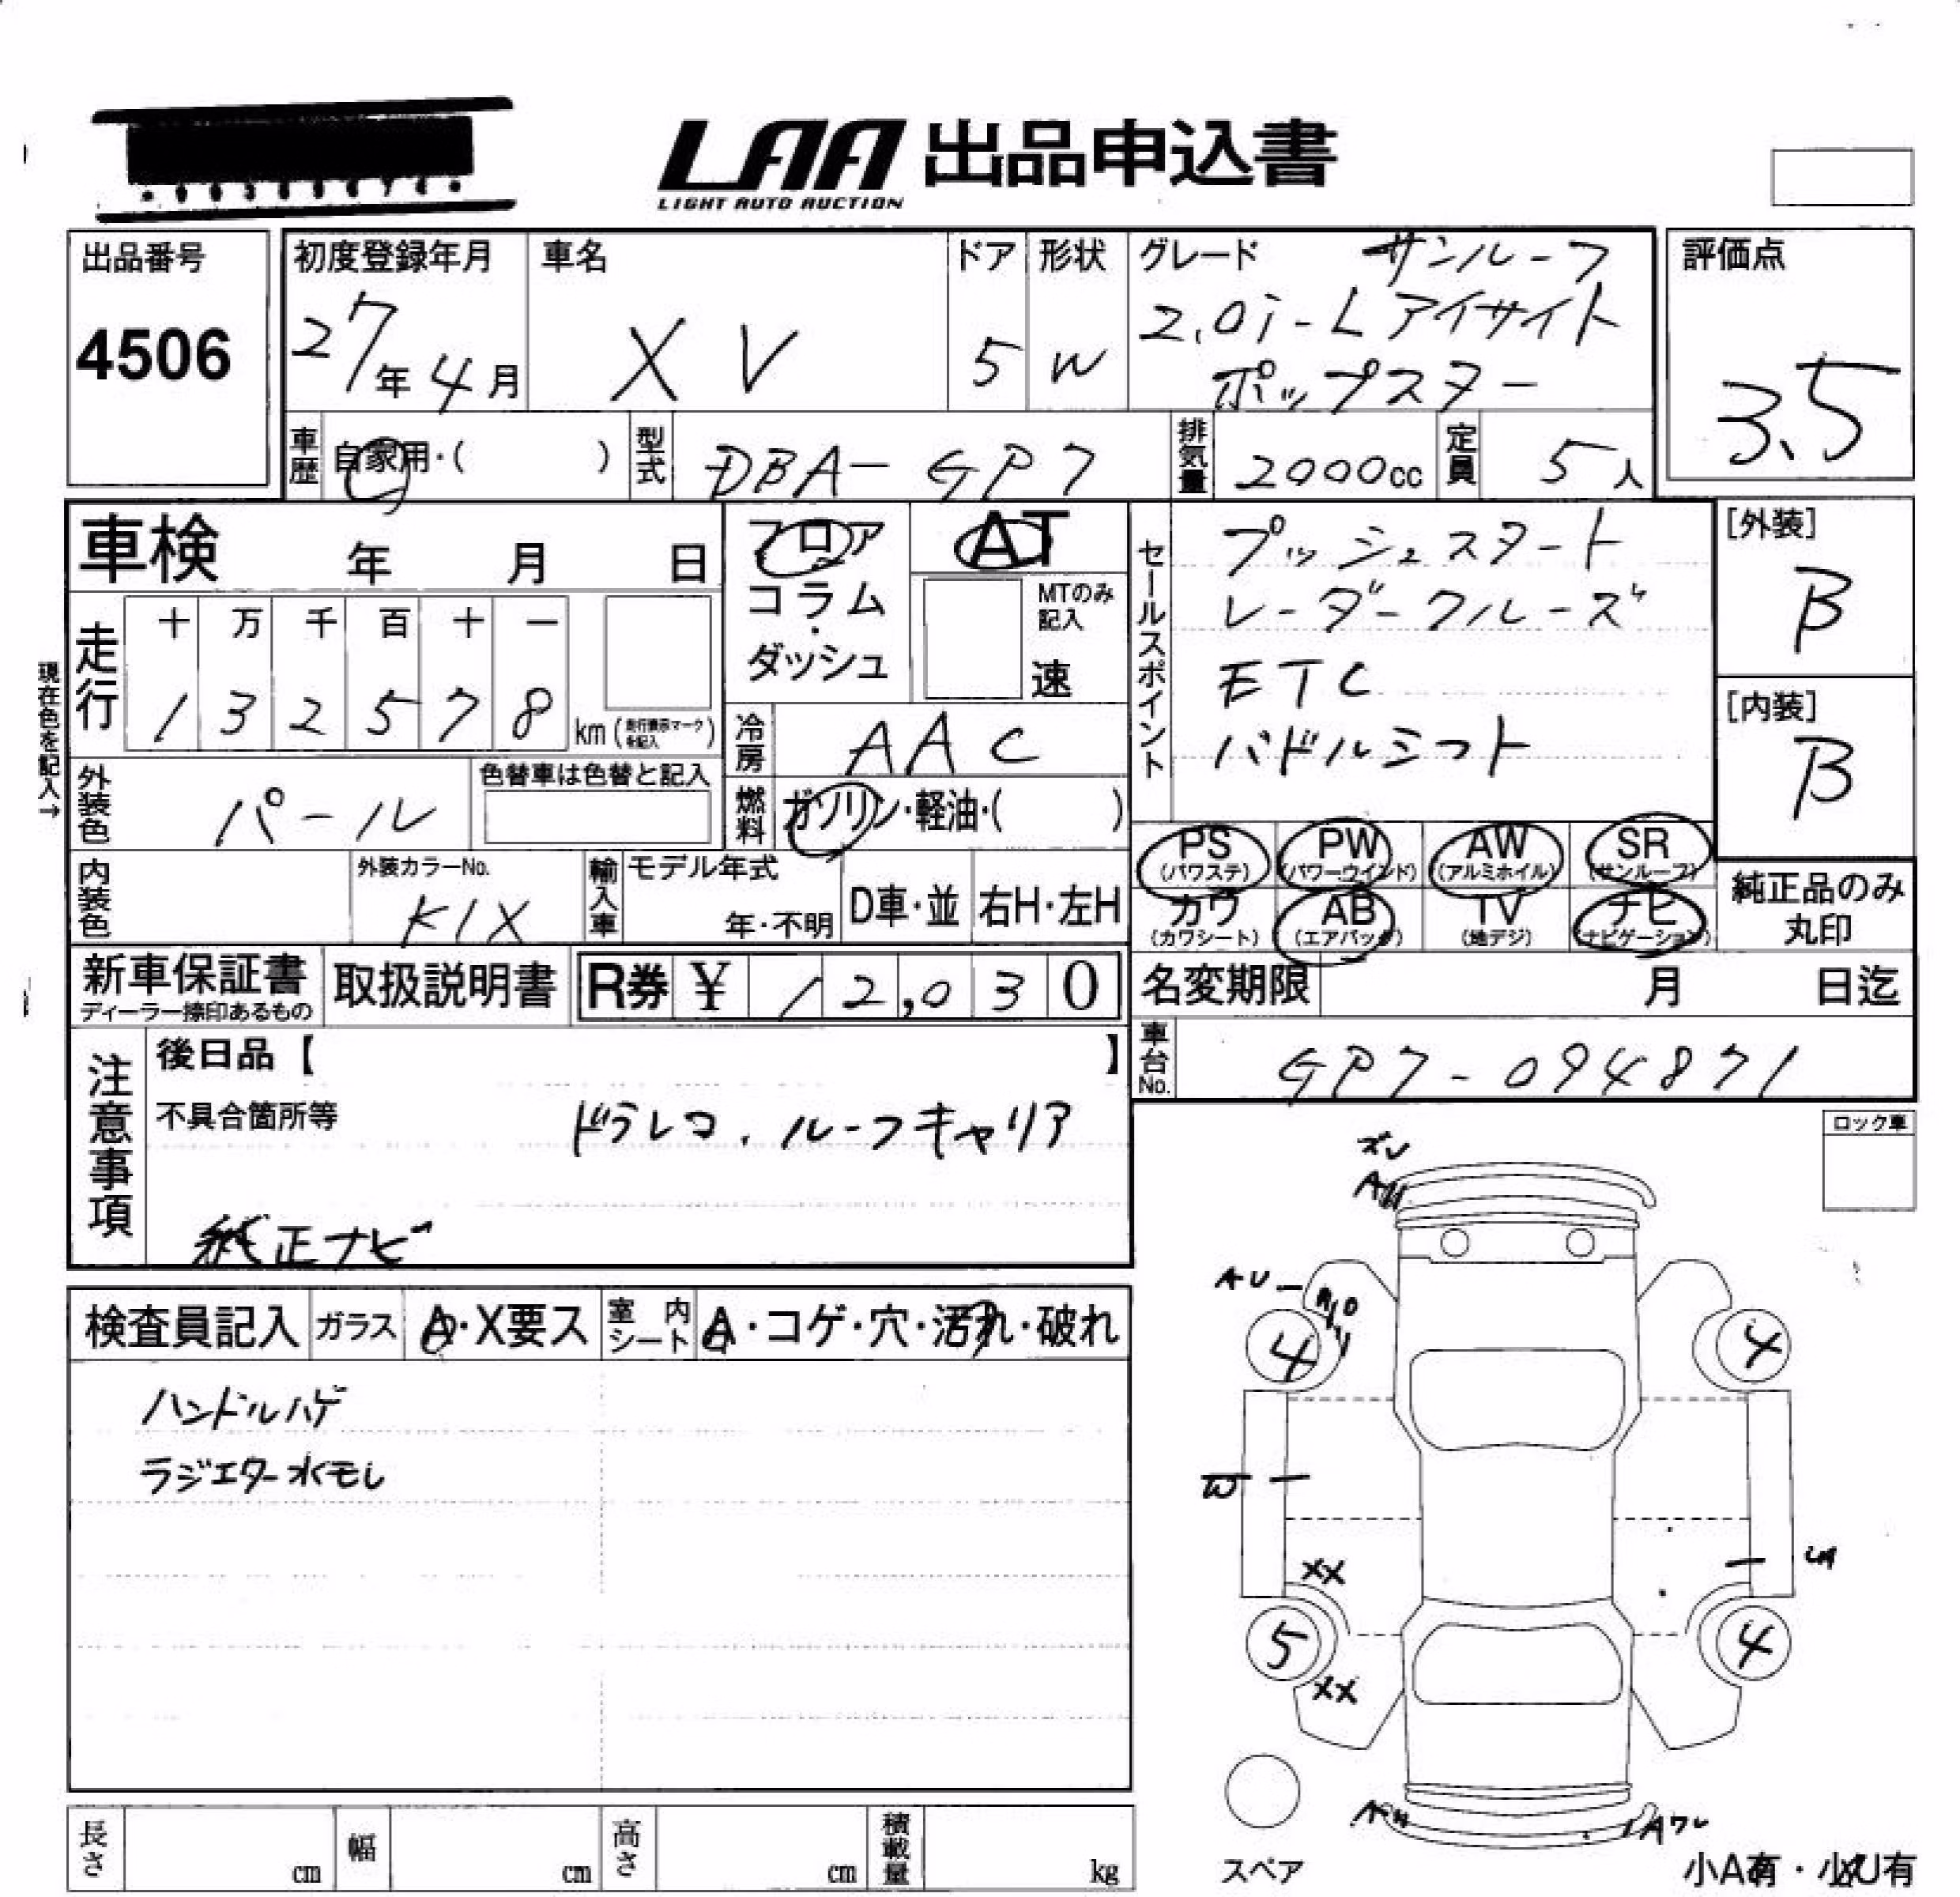 LAA 出品申込書
LIGHT AUTO AUCTION
出品番号
4506
初度登録年月
27年4月
車名
XV
ドア
5
形状
W
グレード
サンルーフ
2.0i-Lアイサイト
ポップスター
評価点
3.5
車歴
自家用・( )
型式
DBA-GP7
排気量
2000cc
定員
5人
車検 年 月 日
フロア
コラム
・
ダッシュ
AT
MTのみ
記入
速
セールスポイント
プッシュスタート
レーダークルーズ
ETC
パドルシフト
[外装]
B
[内装]
B
現在色を記入→
走行
十 万 千 百 十 一
1 3 2 5 7 8
km(走行表示マークを記入)
冷房
AAC
外装色
パール
色替車は色替と記入
燃料
ガソリン・軽油・( )
PS
(パワステ)
PW
(パワーウインド)
AW
(アルミホイル)
SR
(サンルーフ)
カワ
(カワシート)
AB
(エアバック)
TV
(地デジ)
ナビ
(ナビゲーション)
純正品のみ
丸印
内装色
外装カラーNo.
K1X
輸入車
モデル年式
年・不明
D車・並
右H・左H
新車保証書
ディーラー捺印あるもの
取扱説明書
R券 ¥ 12,030
名変期限 月 日迄
車台No.
GP7-094871
注意事項
後日品【 】
不具合箇所等
ドラレコ、ルーフキャリア
純正ナビ
ロック車
検査員記入
ガラス
A・X要ス
室内シート
A・コゲ・穴・汚れ・破れ
ハンドルハゲ
ラジエター水モレ
ズレ
AU
AU
4
4
W
XX
5
4
XX
スペア
小A有・小U有
長さ cm
幅 cm
高さ cm
積載量 kg